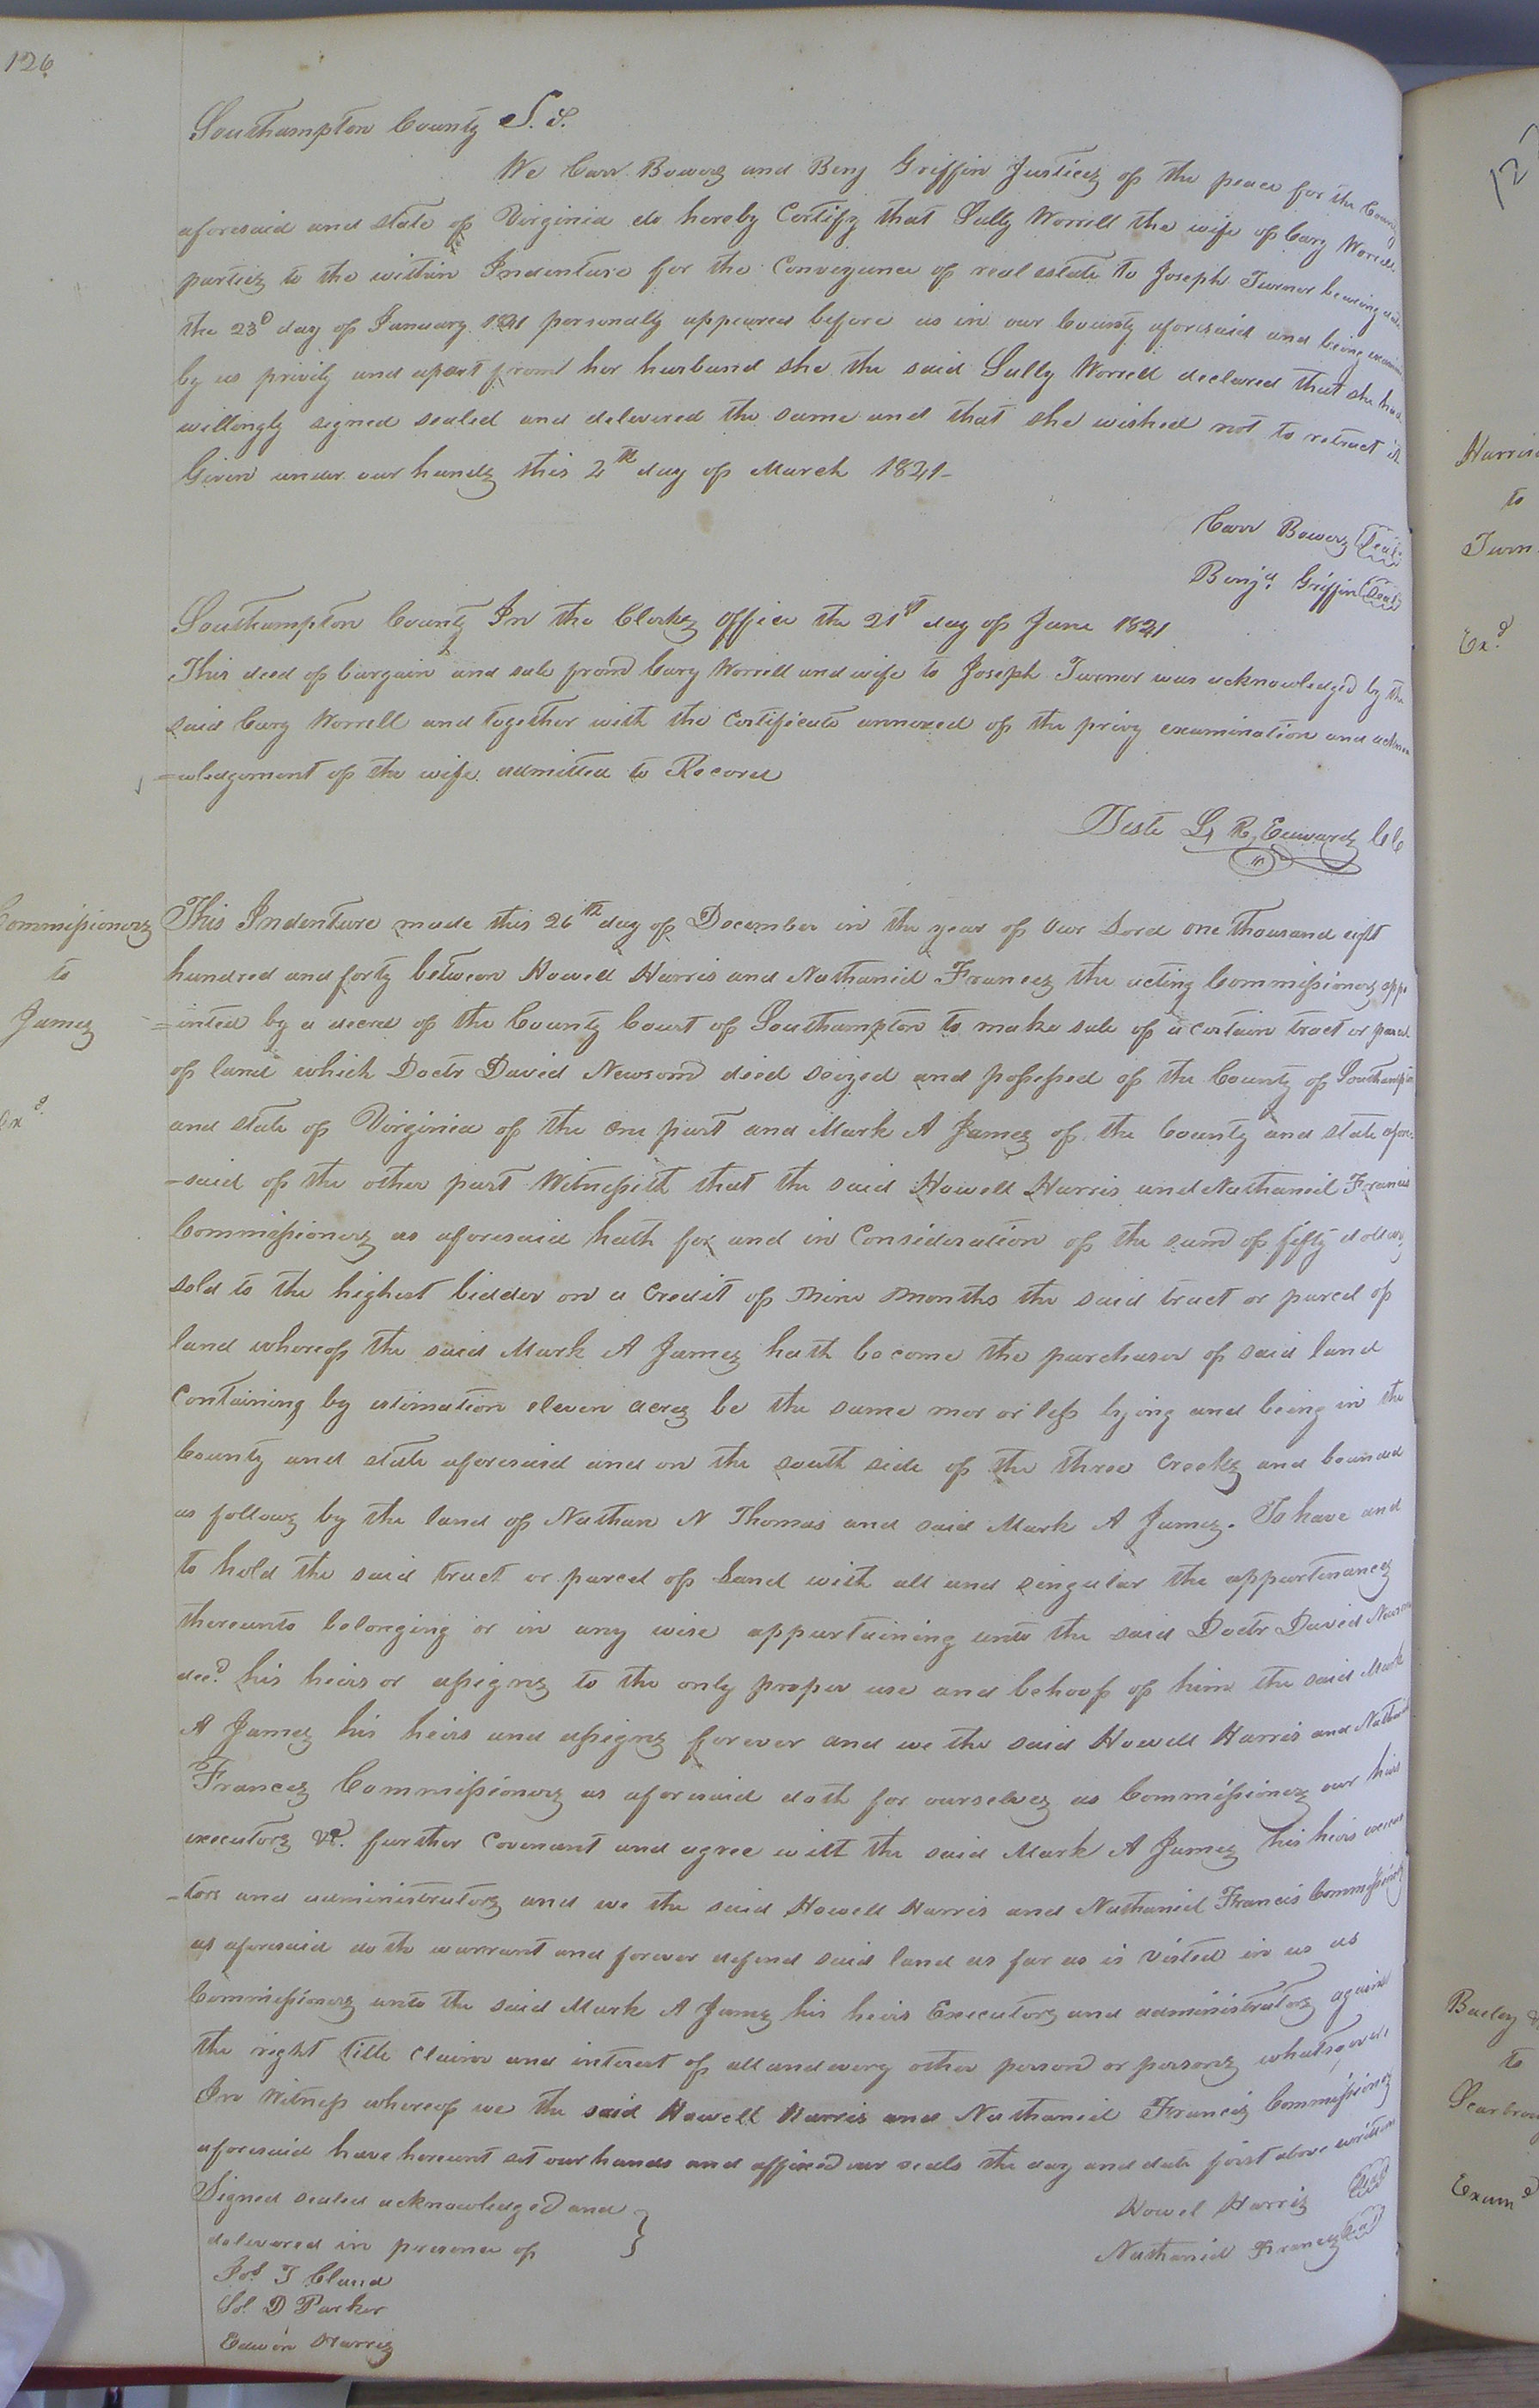 126
Southampton County S. S.
We Carr Bowers and Benj Griffin Justices of the peace for the County
aforesaid and state of Virginia do hereby Certify that Sally Worrell the wife of Cary Worrell
parties to the within Indenture for the Conveyance of real estate to Joseph Turner bearing date
the 23d day of January 1841 personally appeared before us in our County aforesaid and being examined
by us privily and apart from her husband she the said Sally Worrell declared that she had
willingly signed sealed and delivered the same and that she wished not to retract it
Given under our hands this 2th day of March 1841-
Carr Bowers Seal
Benja Griffin Seal
Southampton County In the Clerks office the 21st day of June 1841
This deed of bargain and sale from Cary Worrell and wife to Joseph Turner was acknowledged by the
said Cary Worrell and together with the Certificate annexed of the privy examination and ackno
=wledgement of the wife admitted to Record
Teste L R Edwards CC
Commissioners
to
James
Exd
This Indenture made this 26th day of December in the year of our Lord one thousand eight
hundred and forty between Howell Harris and Nathaniel Frances the acting Commissioners appo
=inted by a decree of the County Court of Southampton to make sale of a certain tract or parcel
of land which Doctr David Newsom died seized and possessed of the County of Southampton
and state of Virginia of the one part and Mark A James of the County and state afore=
=said of the other part Witnesseth that the said Howell Harris and Nathaniel Francis
Commissioners as aforesaid hath for and in Consideration of the sum of fifty dollars
sold to the highest bidder on a Credit of Nine Months the said tract or parcel of
land whereof the said Mark A James hath become the purchaser of said land
Containing by estimation eleven acres be the same mor or less lying and being in the
County and state aforesaid and on the south side of the three Creeks and bounded
as follows by the land of Nathan N Thomas and said Mark A James. To have and
to hold the said tract or parcel of Land with all and singular the appurtenances
thereunto belonging or in any wise appurtaining unto the said Doctr David Newsom
decd his heirs or assigns to the only proper use and behoof of him the said Mark
A James his heirs and assigns forever and we the said Howell Harris and Nathaniel
Frances Commissioners as aforesaid doth for ourselves as Commissioners our heirs
executors &c. further Covenant and agree with the said Mark A James his heirs execu
=tors and administrators and we the said Howell Harris and Nathaniel Francis Commissioners
as aforesaid doth warrant and forever defend said land as far as is Vested in us as
Commissioners unto the said Mark A James his heirs Executors and administrators against
the right title claim and interest of all and every other person or persons whatsoever
In Witness whereof we the said Howell Harris and Nathaniel Francis Commissioners
aforesaid have hereunt set our hands and affixed our seals the day and date first above written
Signed sealed acknowledged and
delivered in presence of
Howel Harris Seal
Nathaniel Frances Seal
Jos T Claud
Sol D Parker
Edwin Harris
127
to
Exd
to
Examd